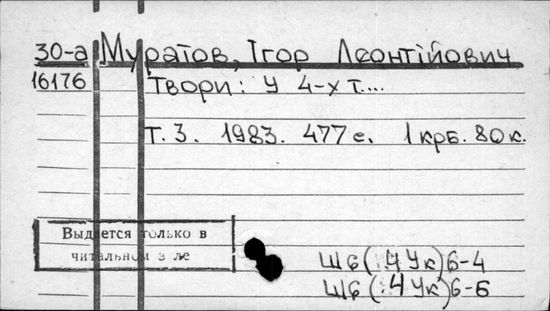 30-а Муратов, Ігор Леонтійович
16176 Твори: У 4-х т....
Т. 3. 1983. 477 с. 1 крб. 80 к.
Выдается только в
читальном з ле
Ш6(4Ук)6-4
Ш6(4Ук)6-6